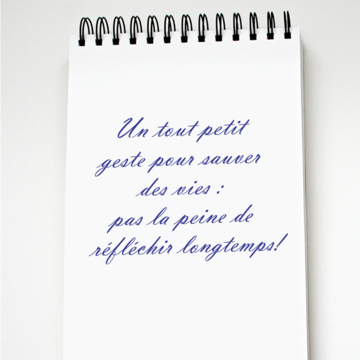 Un tout petit
geste pour sauver
des vies :
pas la peine de
réfléchir longtemps!